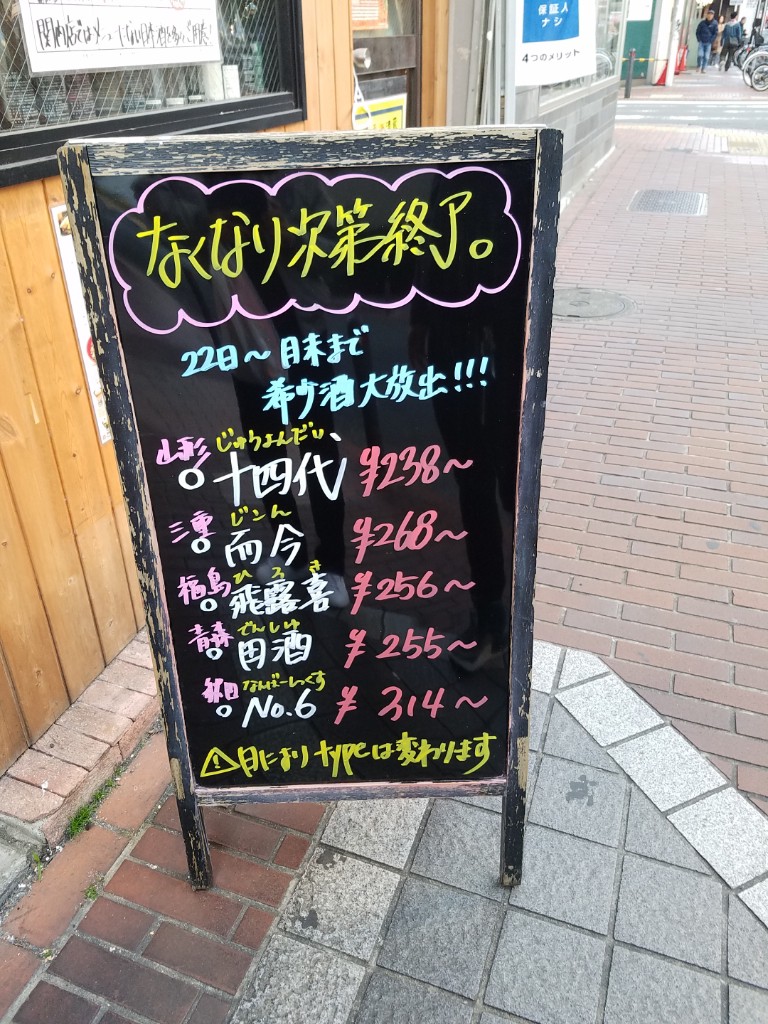 保証人
ナシ
4つのメリット
なくなり次第終了。
22日～月末まで
希少酒大放出!!!
じゅうよんだい
山形 十四代 ¥238～
じこん
三重 而今 ¥268～
ひろき
福島 飛露喜 ¥256～
でんしゅ
青森 田酒 ¥255～
なんばーしっくす
秋田 No.6 ¥314～
⚠日によりtypeは変わります